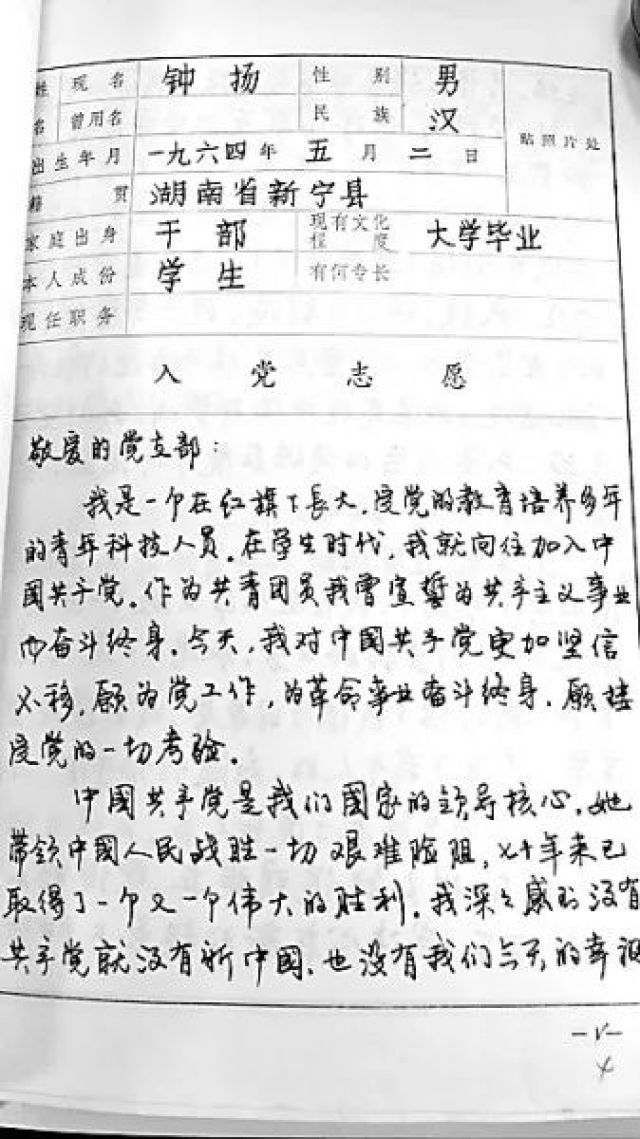 姓 现名 钟扬 性别 男
名 曾用名 民族 汉 贴照片处
出生年月 一九六四年五月二日
籍贯 湖南省新宁县
家庭出身 干部 现有文化程度 大学毕业
本人成份 学生 有何专长
现任职务
入党志愿
敬爱的党支部：
我是一个在红旗下長大，受党的教育培养多年
的青年科技人员。在学生时代，我就向往加入中
國共产党。作为共青团员我曾宣誓为共产主义事业
而奋斗终身。今天，我对中國共产党更加坚信
不移，愿为党工作，为革命事业奋斗终身，愿接
受党的一切考验。
中國共产党是我们國家的领导核心，她
带领中國人民战胜一切艰难险阻，七十年来已
取得了一个又一个伟大的胜利。我深々感到没有
共产党就没有新中國，也没有我们今天的幸福